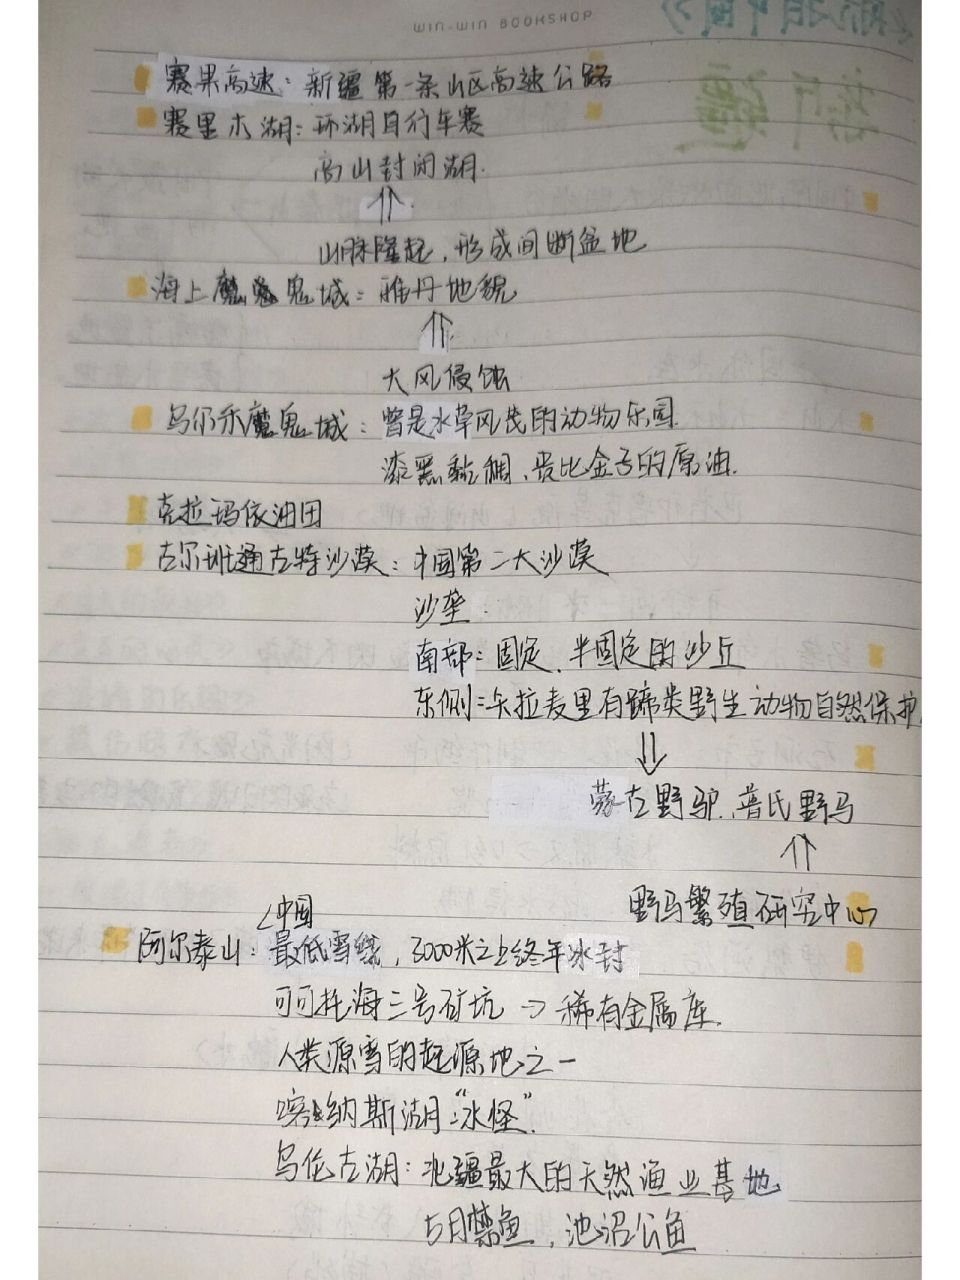 WIN-WIN BOOKSHOP
赛果高速：新疆第一条山区高速公路
赛里木湖：环湖自行车赛
高山封闭湖.
⇑
山脉隆起，形成间断盆地
海上魔鬼城：雅丹地貌
⇑
大风侵蚀
乌尔禾魔鬼城：曾是水草风茂的动物乐园
漆黑黏稠、贵比金子的原油.
克拉玛依油田
古尔班通古特沙漠：中国第二大沙漠
沙垄
南部：固定、半固定的沙丘
东侧：卡拉麦里有蹄类野生动物自然保护
⇓
蒙古野驴、普氏野马
⇑
野马繁殖研究中心
中国
阿尔泰山：最低雪线，3000米之上终年冰封
可可托海三号矿坑→稀有金属库.
人类滑雪的起源地之一
喀纳斯湖："水怪"
乌伦古湖：北疆最大的天然渔业基地
5月禁鱼，池沼公鱼